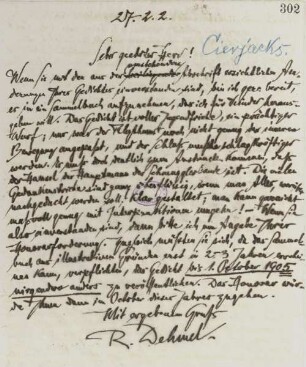 302
27.2.2.
Sehr geehrter Herr! Cierjacks.
anstehenden
Wenn Sie mit den aus der Abschrift ersichtlichen Aen-
derungen Ihres Gedichtes einverstanden sind, bin ich gern bereit,
es in ein Sammelbuch aufzunehmen, das ich für Kinder heraus-
geben will. Das Gedicht ist voller Jugendfrische, ein prächtiger
Wurf; nur war der Rhythmus noch nicht genug der inneren
Bewegung angepaßt, und der Schluß mußte schlagkräftiger
werden. Es muß doch deutlich zum Ausdruck kommen, daß
der Hansel der Hauptmann der Schmugglerbande ist. Die vielen
Gedankenstriche sind ganz überflüssig, wenn man alles, worüber
nachgedacht werden soll, klar gestaltet; man kann garnicht
maßvoll genug mit Interpunktionen umgehn! – Wenn Sie
also einverstanden sind, dann bitte ich um Angabe Ihrer
Honorarforderung. Zugleich müßten Sie sich, da das Sammel-
buch aus illustrativen Gründen erst in 2–3 Jahren erschei-
nen kann, verpflichten, das Gedicht bis 1. October 1905
nirgendwo anders zu veröffentlichen. Das Honorar wür-
de Ihnen dann im October dieses Jahres zugehen.
Mit ergebenem Gruß
R. Dehmel.